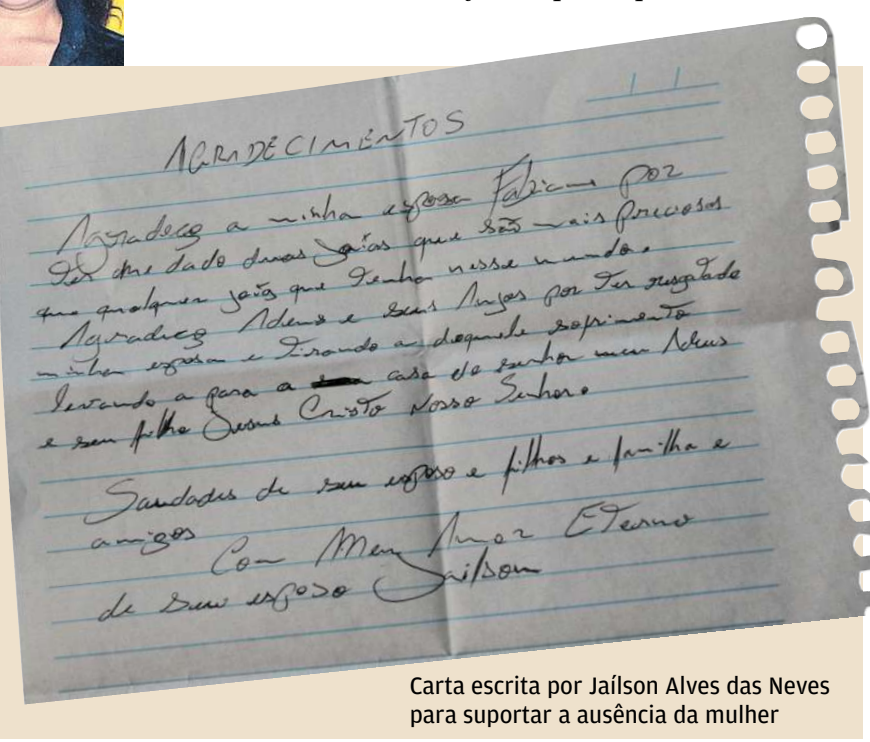 AGRADECIMENTOS
Agradeço a minha esposa Fabiana por
ter me dado duas joias que são mais preciosas
que qualquer joias que tenha nesse mundo.
Agradeço Adeus e seus Anjos por ter resgatado
minha esposa e tirando a daquele sofrimento
levando a para a casa do senhor meu Adeus
e seu filho Jesus Cristo Nosso Senhor.
Saudades de seu esposo e filhos e familha e
amigos
Com Meu Amor Eterno
de seu esposo Jailson
Carta escrita por Jaílson Alves das Neves
para suportar a ausência da mulher